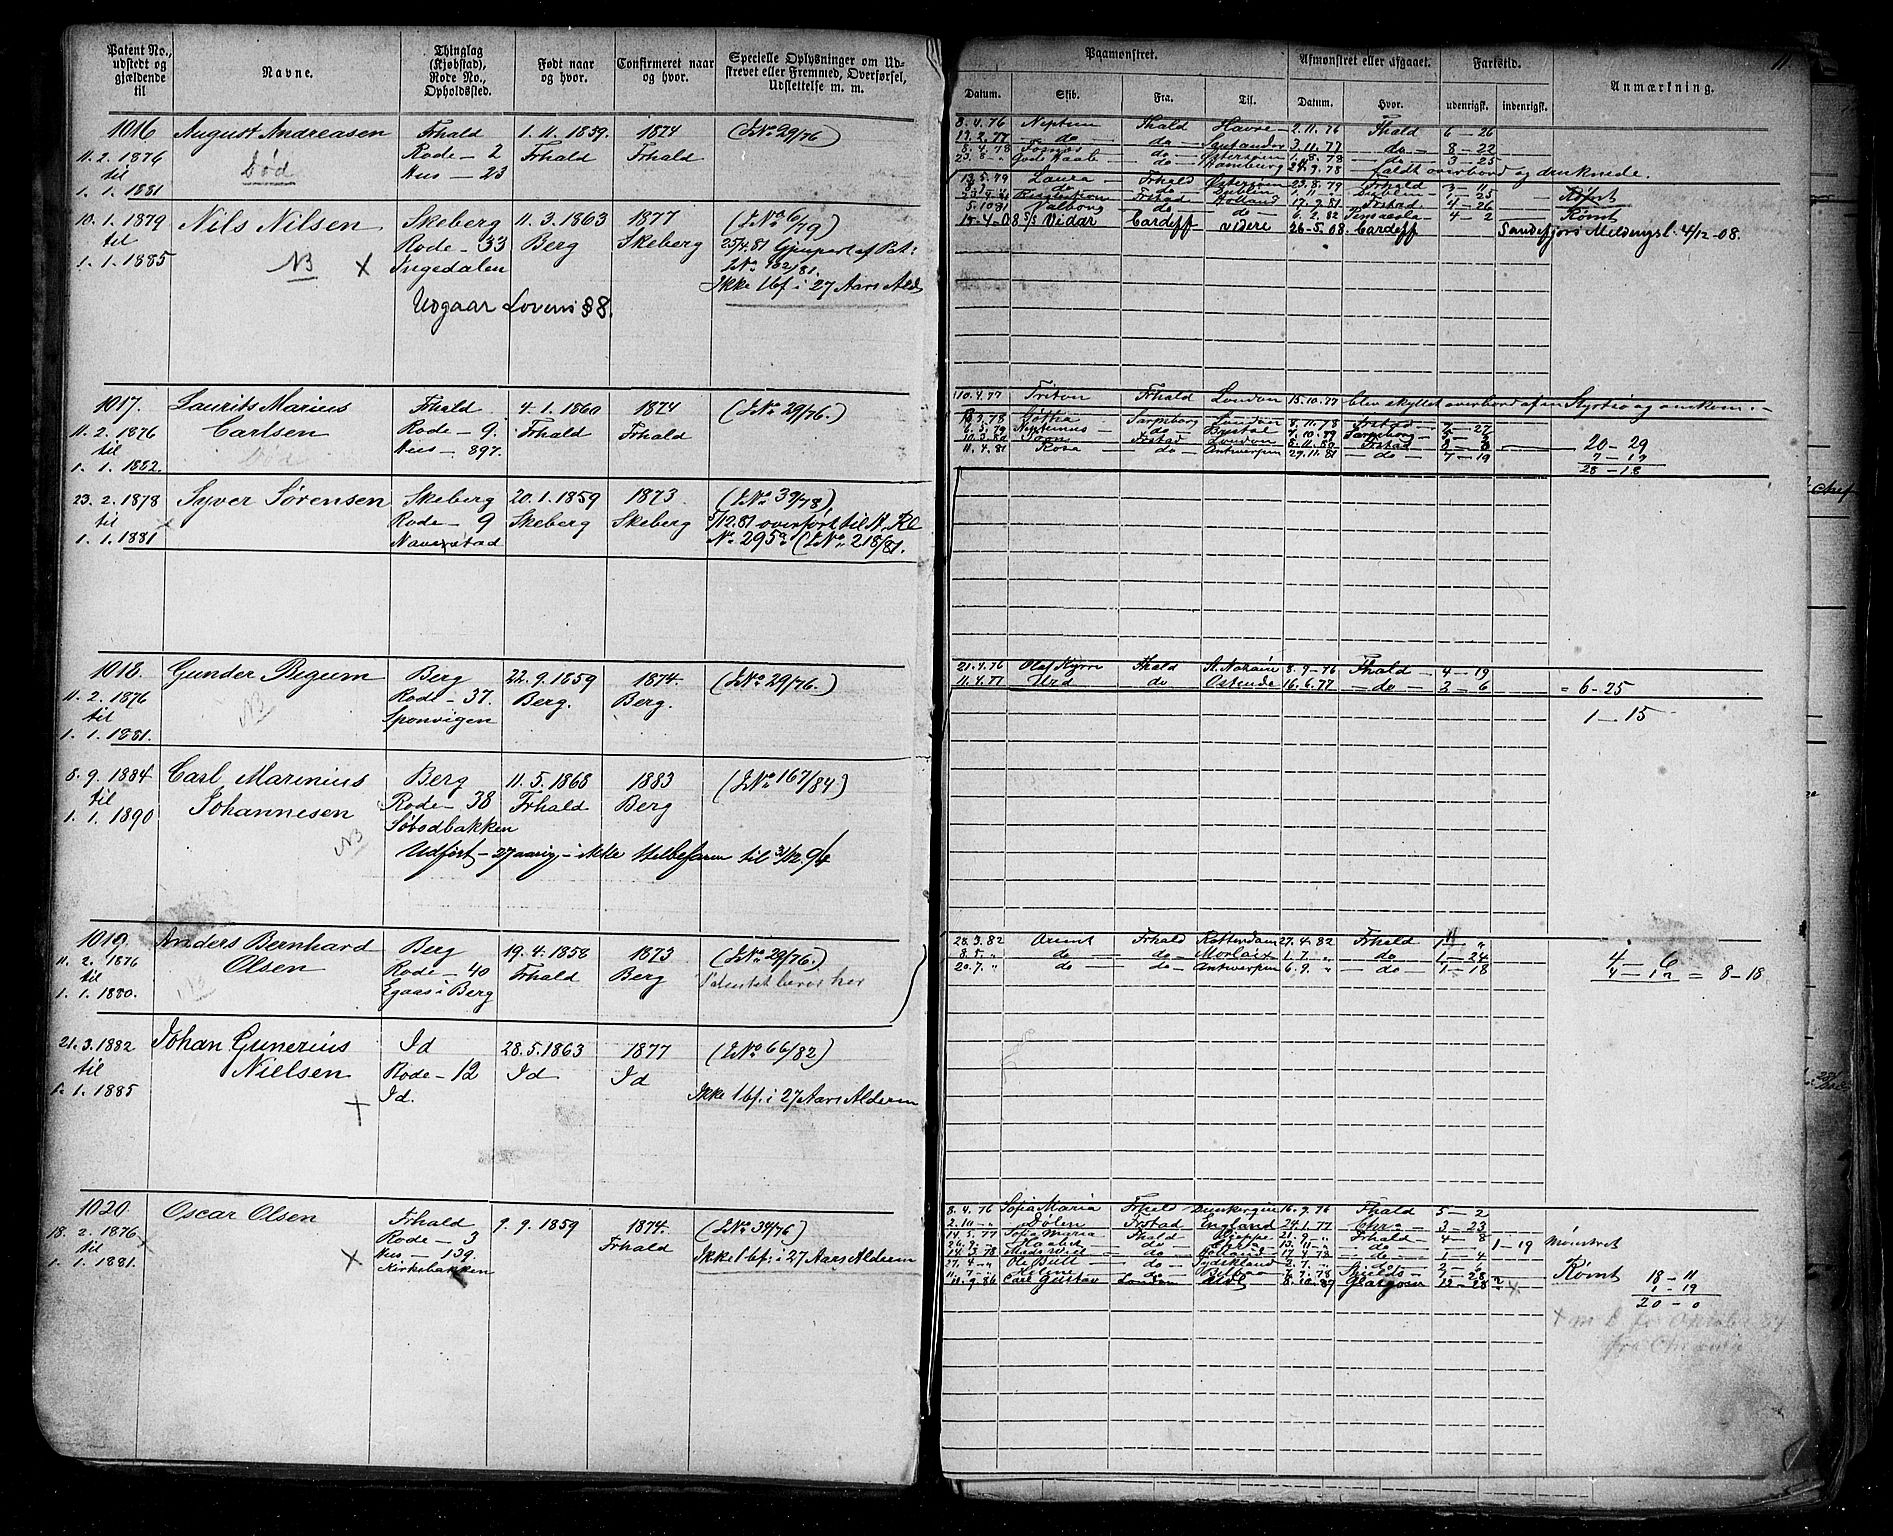 Patent No., udstedt og gjældende til
Navne.
Thinglag (Kjøbstad), Rode No., Opholdssted.
Født naar og hvor.
Confirmeret naar og hvor.
Specielle Oplysninger om Udstrevet eller Fremmed, Overførsel, Udslettelse m. m.
1016 August Andreasen Frhald 1. 11. 1859. 1874 (J.No 29/76)
11. 2. 1876 Død Rode - 2 Frhald Frhald
til Hus - 23
1. 1. 1881
10. 1. 1879 Nils Nilsen Skeberg 11. 3. 1863 1877 (J.No 6/79)
til Rode - 33 Berg Skeberg
1. 1. 1885 NB X Ingedalen J.No 162/81.
Ikke 1 bf. i 27 Aars Ald
Udgaar Lovens § 8.
1017. Laurits Marius Frhald 4. 1. 1860 1874 (J.No 29/76.)
11. 2. 1876 Carlsen Rode - 9. Frhald Frhald
til Hus - 897.
1. 1. 1882.
23. 2. 1878 Syver Sørensen Skeberg 20. 1. 1859 1873 (J.No 39/78)
til Rode - 9 Skeberg Skeberg 5/12.81 overført til N. Rl
1. 1. 1881 Naverstad No 295a (J.No 218/81.
1018. Gunder Begum Berg 22. 9. 1859 1874. (J.No 29/76.)
11. 2. 1876 NB Rode - 37. Berg. Berg.
til Sponvigen
1. 1. 1881.
8. 9. 1884 Carl Marinius Berg 11. 5. 1868 1883 (J.No 167/84)
til Johannesen Rode - 38 Frhald Berg
1. 1. 1890 NB Søbodbakken
Udført - 27 aarig - ikke Helbefaren til 31/12.94
1019. Anders Bernhard Berg 19. 4. 1858 1873 (J.No 29/76.)
11. 2. 1876 Olsen Rode - 40 Frhald Berg Patentet beror her
til Egaas i Berg
1. 1. 1880.
21. 3. 1882 Johan Gunerius Id 28. 5. 1863 1877 (J.No 66/82)
til Nielsen Rode - 12 Id Id
1. 1. 1885 Id. Ikke 1 bf. i 27 Aars Alderen
1020. Oscar Olsen Frhald 9. 9. 1859 1874. (J.No 34/76)
18. 2. 1876 Rode - 3 Frhald
til X Hus - 139. Ikke 1 bf. i 27 Aars Alderen
1. 1. 1881. Kirkebakken
Paamønstret. Afmønstret eller afgaaet. Fartstid. Anmærkning.
Datum. Skib. Fra. Til. Datum. Hvor. udenrigsk. indenrigsk.
8. 4. 76 Neptun Fhald Havre 2. 11. 76 Fhald 6 - 26
13. 2. 77 do do Santander 3. 11. 77 do 8 - 22
8. 4. 78 Fosnæs do Østersøen 1. 8. 78 do 3 - 25
23. 8 " Godthaab do Hamburg 24. 9. 78 faldt overbord og druknede.
13. 5. 79 Laura Frhald Østersøen 23. 8. 79 Frhald 3 - 11
Holland 17. 9. 81 Frstad 4 - 26 Rømt
5. 10 81 Valborg do do 6. 2. 82 Pensacola 4 2 Rømt
15-4-08 S/S Vidar Cardiff videre 26-5-08. Cardiff Sandefjords Meldingsl. 4/12-08.
10. 4. 77 Triton Frhald London 15. 10. 77 blev skyllet overbord af en Styrtsø og omkom.
78 Gøtha Sarpsborg London 8. 11. 78 Frstad 7 - 27
Neptunus do Sarpsborg
Frstad London Frstad 20 - 29
11. 4. 81 Rosa do Antwerpen 29. 11. 81 do 7 - 19 7 - 19
28 - 18
21. 4. 76 Olaf Kyrre Fhald St. Nazaire 8. 9. 76 Fhald 4 - 19
11. 4. 77 Urd do Ostende 16. 6. 77 do 2 - 6 = 6 - 25
1 - 15
28. 3. 82 Orient Frhald Rotterdam 27. 4. 82 Frhald 1 "
8. 5. " do do Morlaix 1. 7. " do 1 - 24 4 - 6
20. 7. " do do Antwerpen 6. 9. " do 1 - 18 4 - 12 = 8 - 18.
8. 4. 76 Sofia Maria Frhald Dunkerque 16. 9. 76 Fhald 5 - 2
2. 10 " Dølen Frstad England 24. 1. 77 Chra 3 - 23
14. 5. 77 Sofia Myria Fhald Dieppe 21. 9. " Frhald 4 - 8
Haabet do 1 - 19 Mønstret
14. 3. 78 do Holland do 1 - 4
27. 4 " Ole Bull do Tydskland 2. 7. " do 2 - 6
Helene do Bilbao Shields 1 - 28 Rømt 18 - 11
11. 9. 86 Carl Gustav London 8. 10. 87 Glasgow 12 - 28 X 1 - 19
20 - 0
fra Chrania